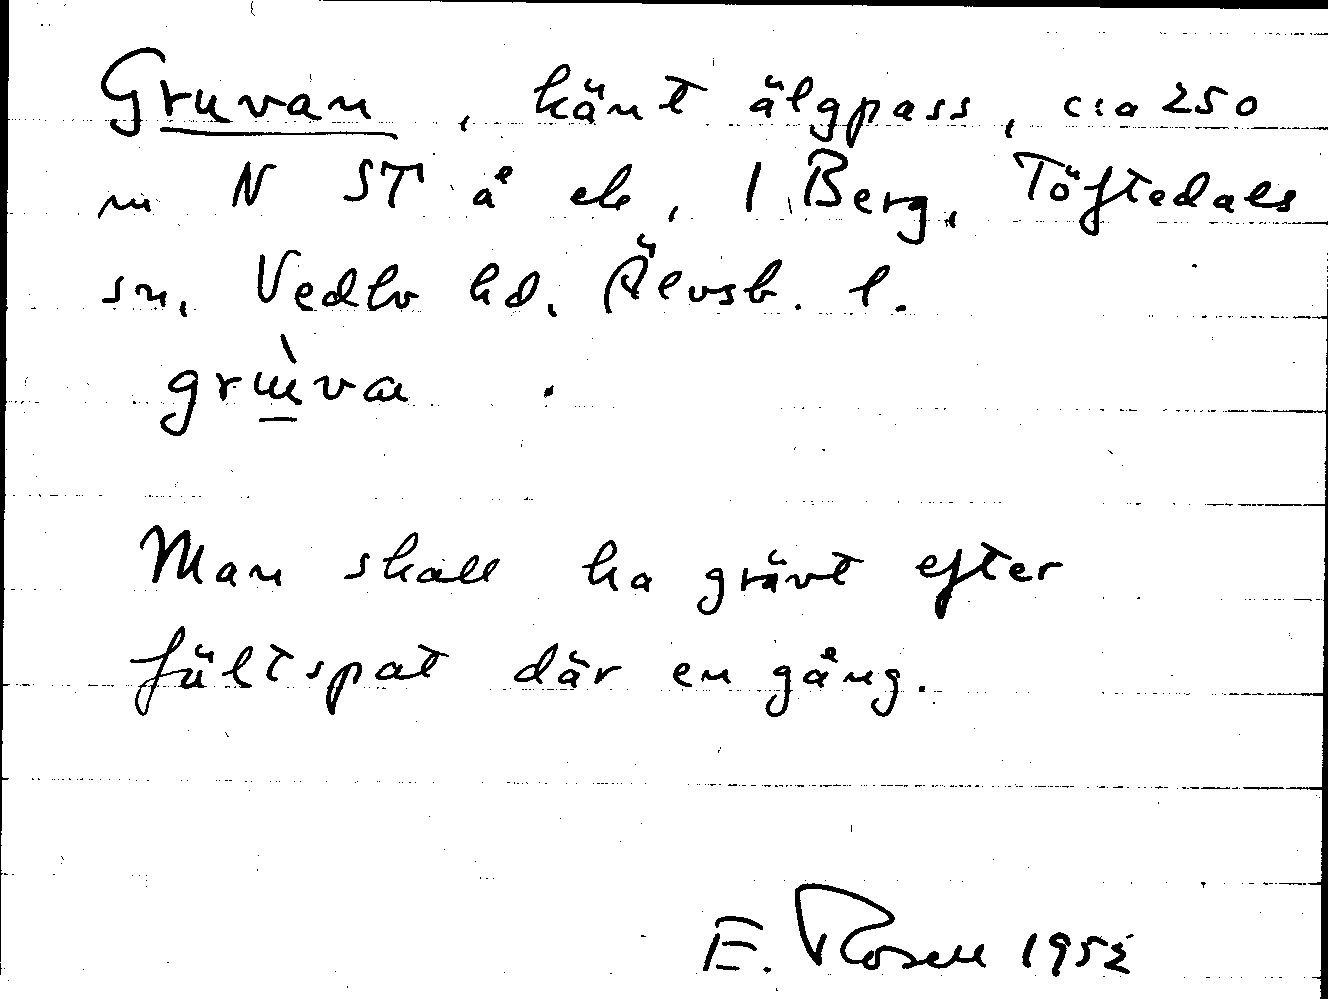 Gruvan, känt älgpass, c:a 250
m N ST å ek, 1 Berg, Töftedals
sn, Vedbo hd, Älvsb. l.
grùva.
Man skall ha grävt efter
fältspat där en gång.
E. Rosell 1952